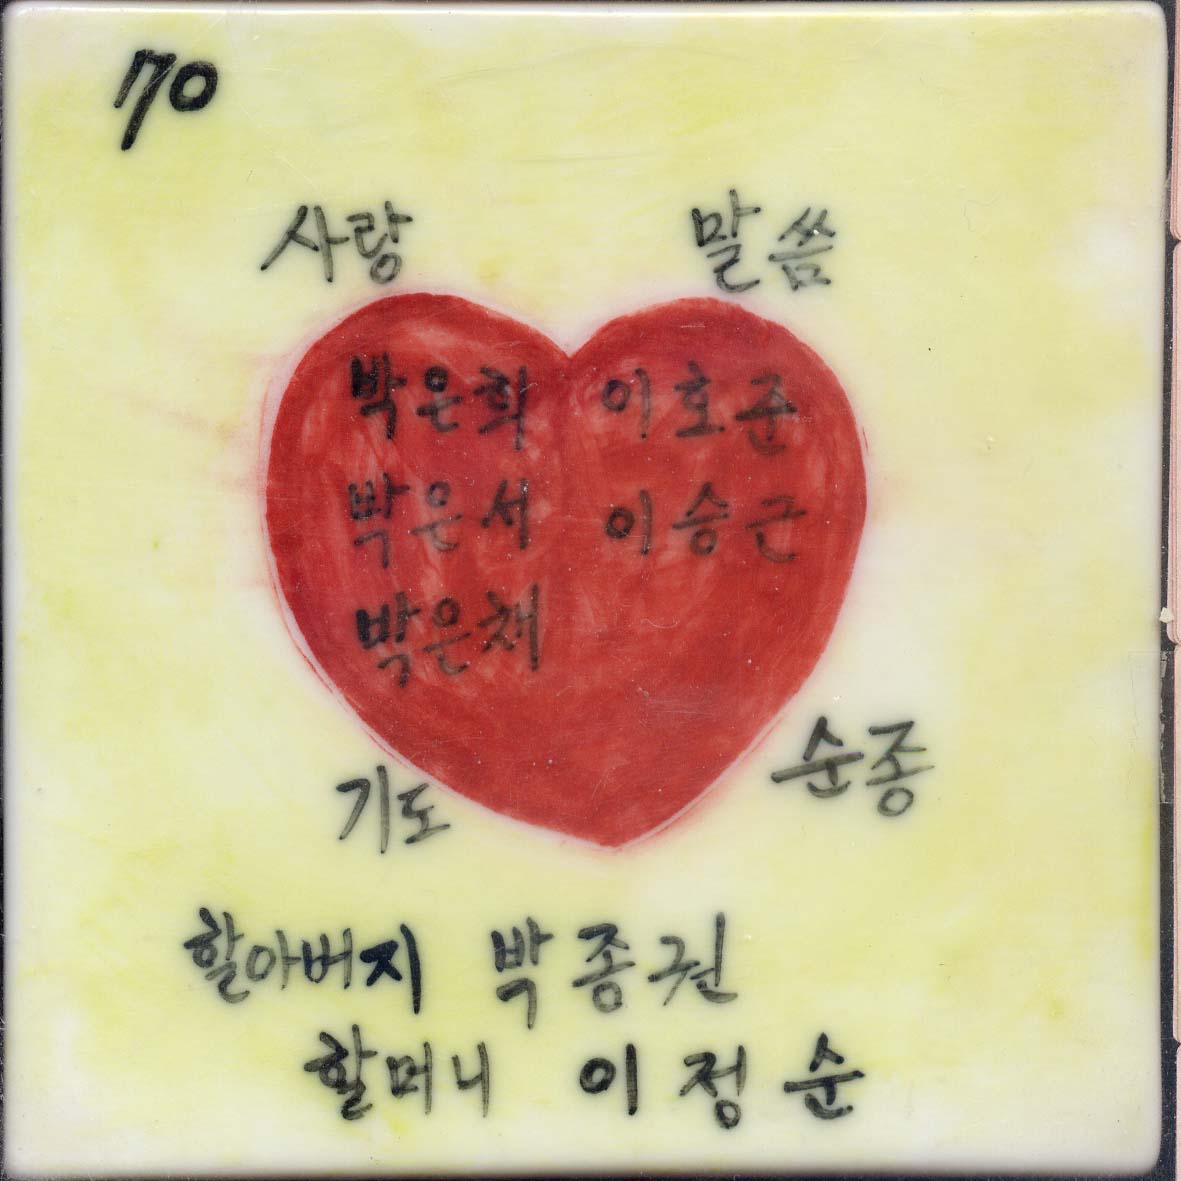 70
사랑 말씀
박은희 이호준
박은서 이승근
박은채
기도 순종
할아버지 박종권
할머니 이정순